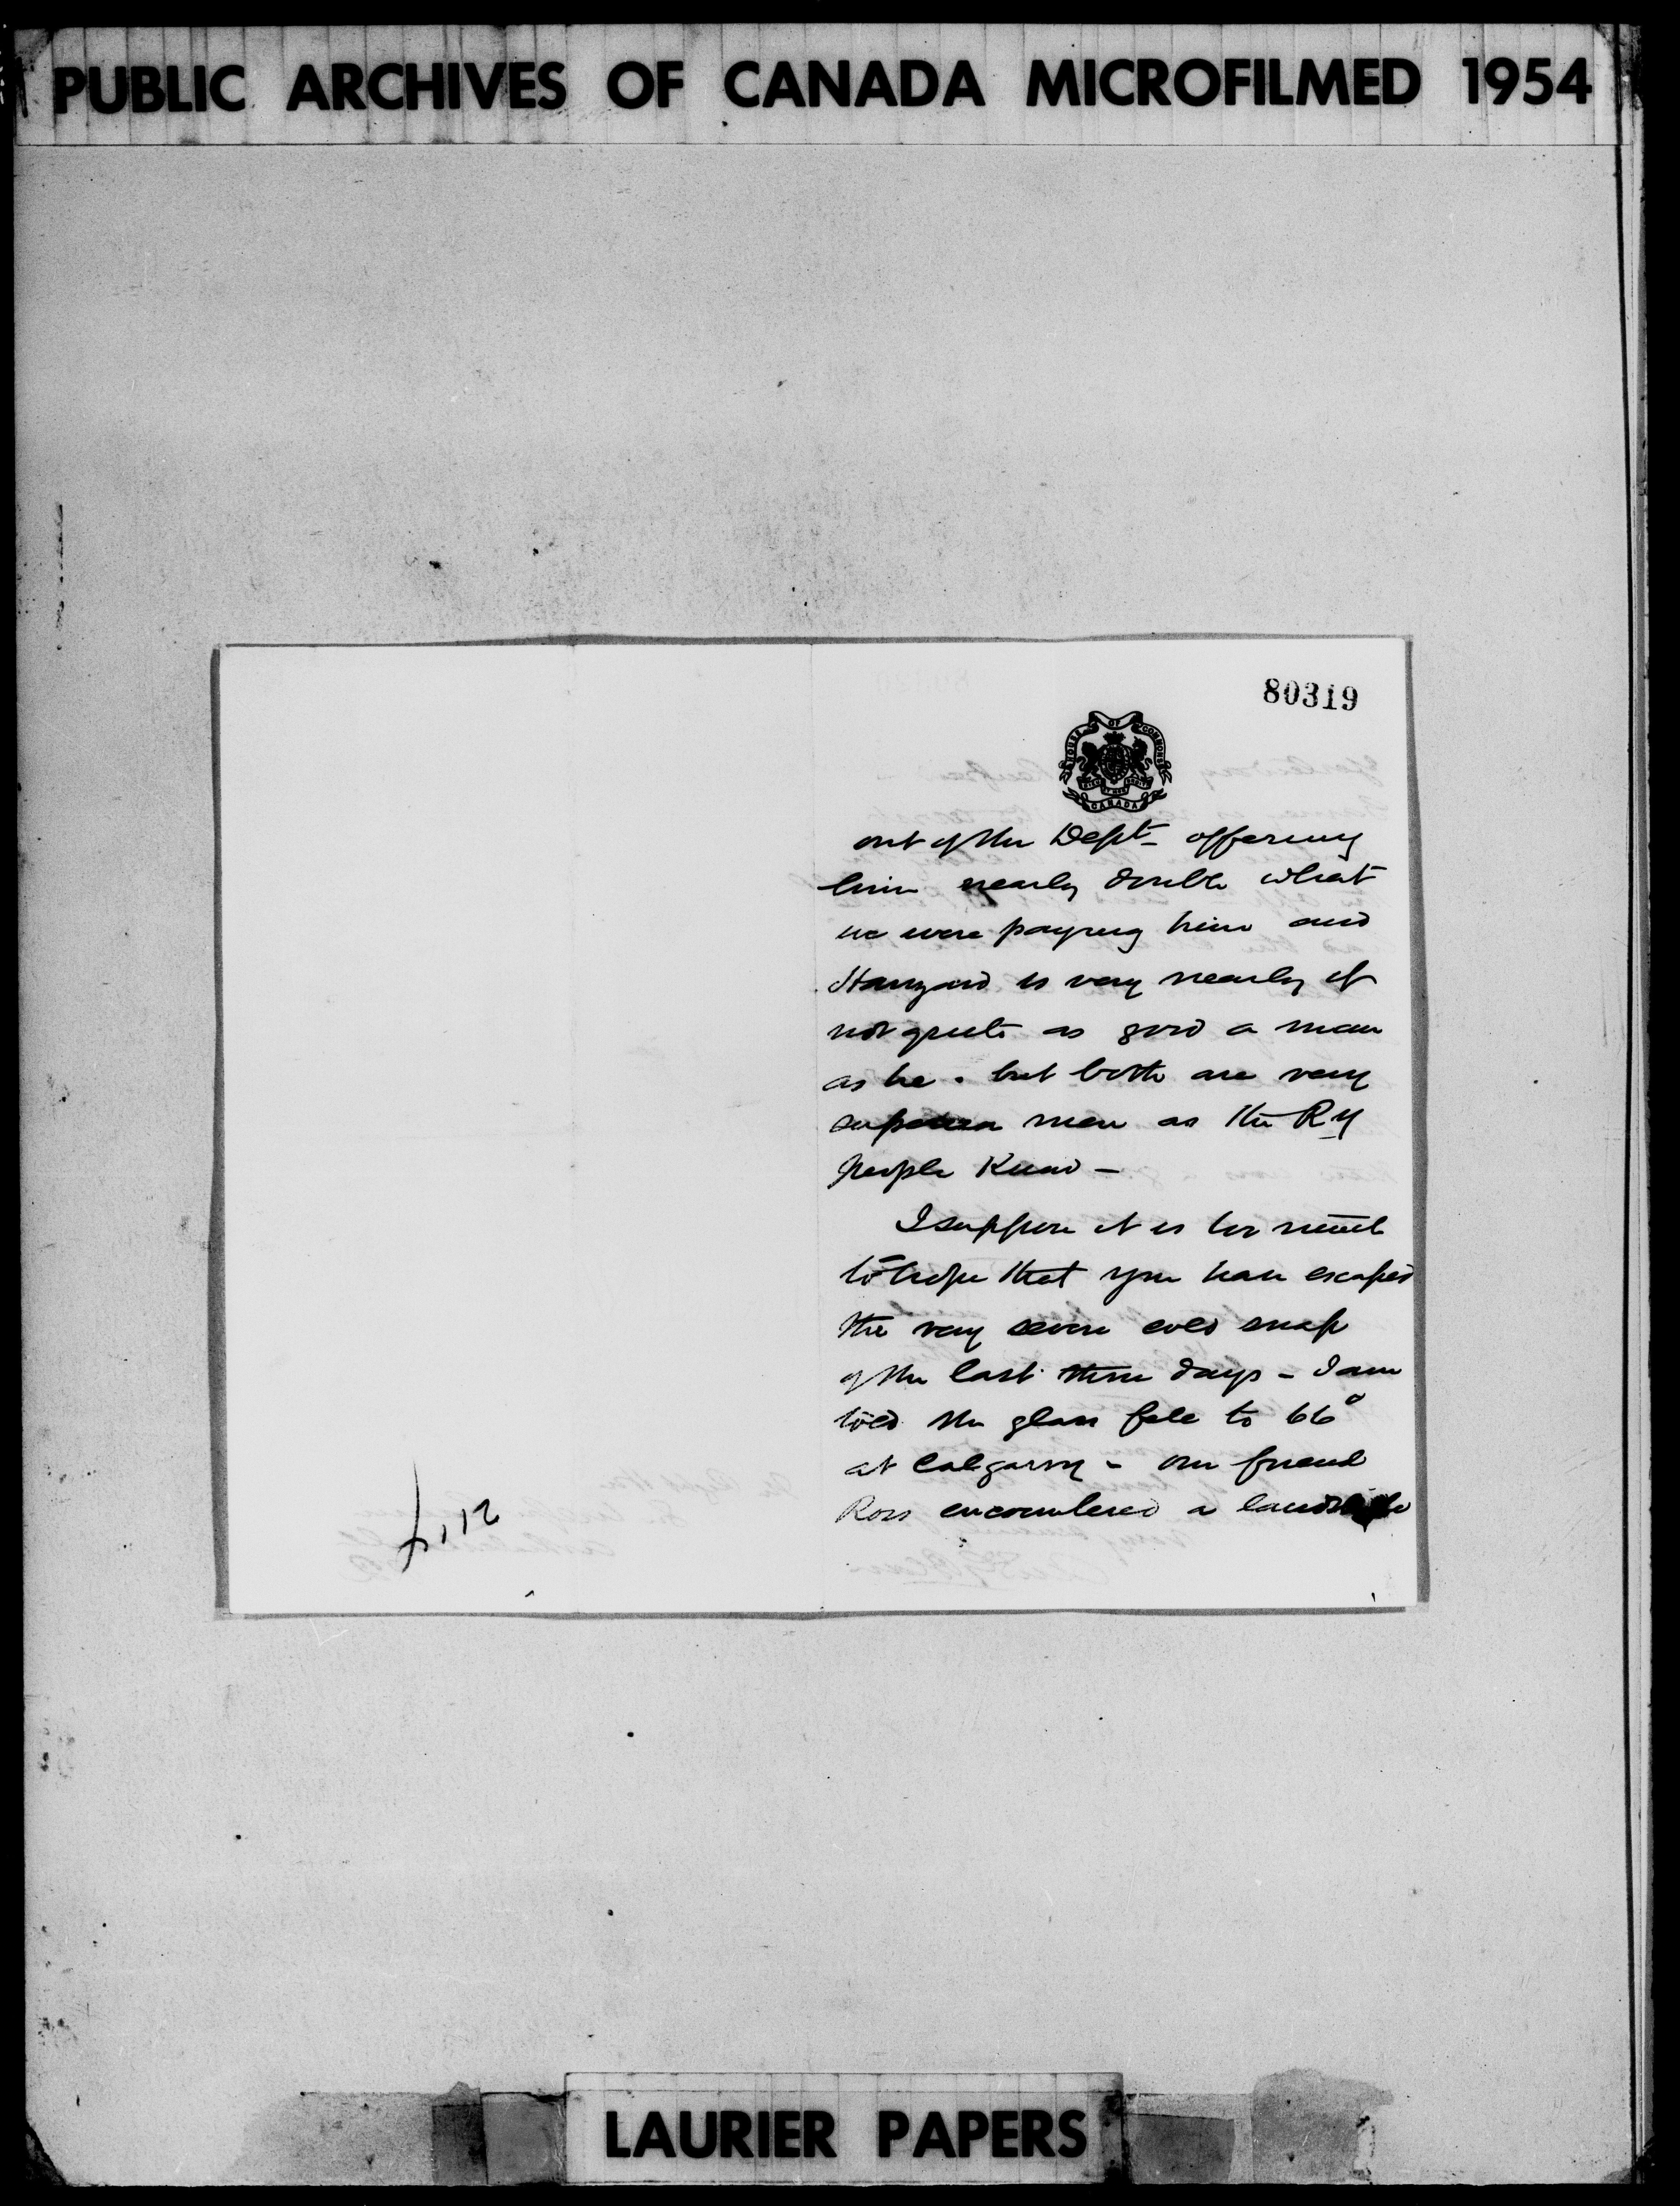 PUBLIC ARCHIVES OF CANADA MICROFILMED 1954
80319
HOUSE OF COMMONS
CANADA
out of the Dept - offering
him nearly double what
we were paying him and
is very nearly if
not quite as good a man
as he . but both are very
superior men as the Ry
people know -
I suppose it is too much
to hope that you have escaped
the very severe cold snap
of the last three days - I am
told the glass fell to 66°
at Calgarry - our friend
Ross encountered a landslide
LAURIER PAPERS